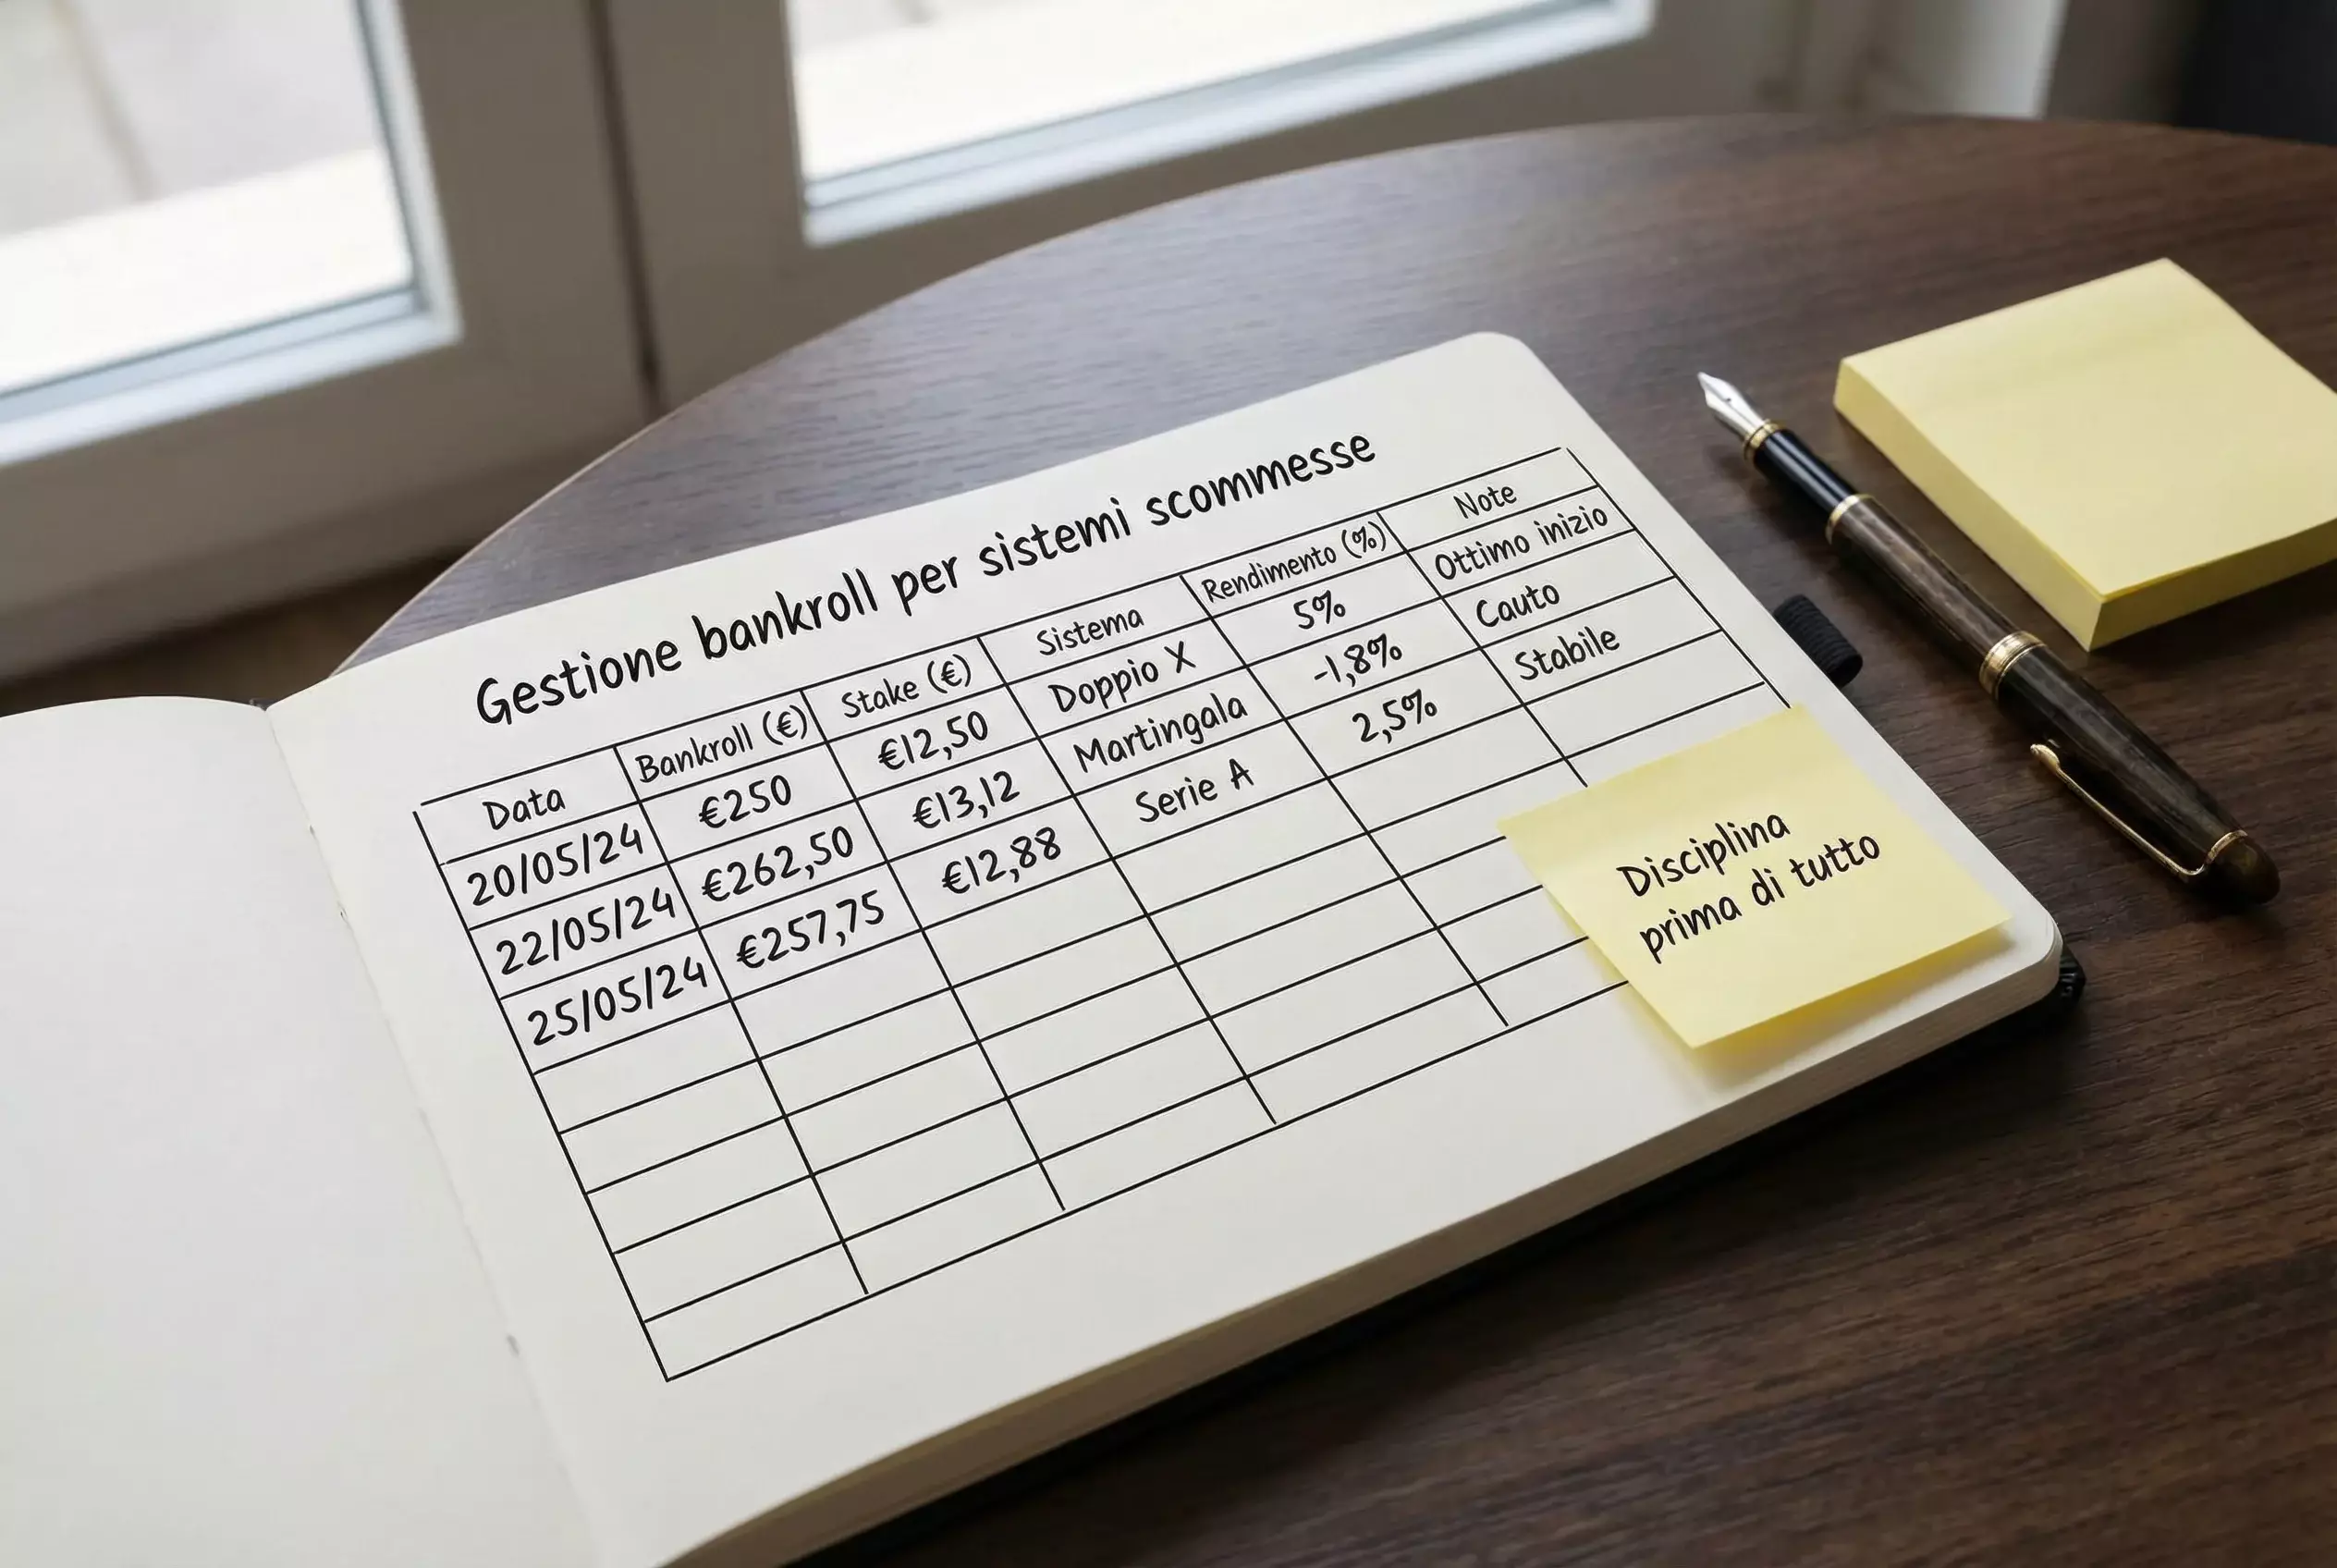 Gestione bankroll per sistemi scommesse
Data Bankroll (€) Stake (€) Sistema Rendimento (%) Note
20/05/24 €250 €12,50 Doppio X 5% Ottimo inizio
22/05/24 €262,50 €13,12 Martingala -1,8% Cauto
25/05/24 €257,75 €12,88 Serie A 2,5% Stabile
Disciplina
prima di tutto